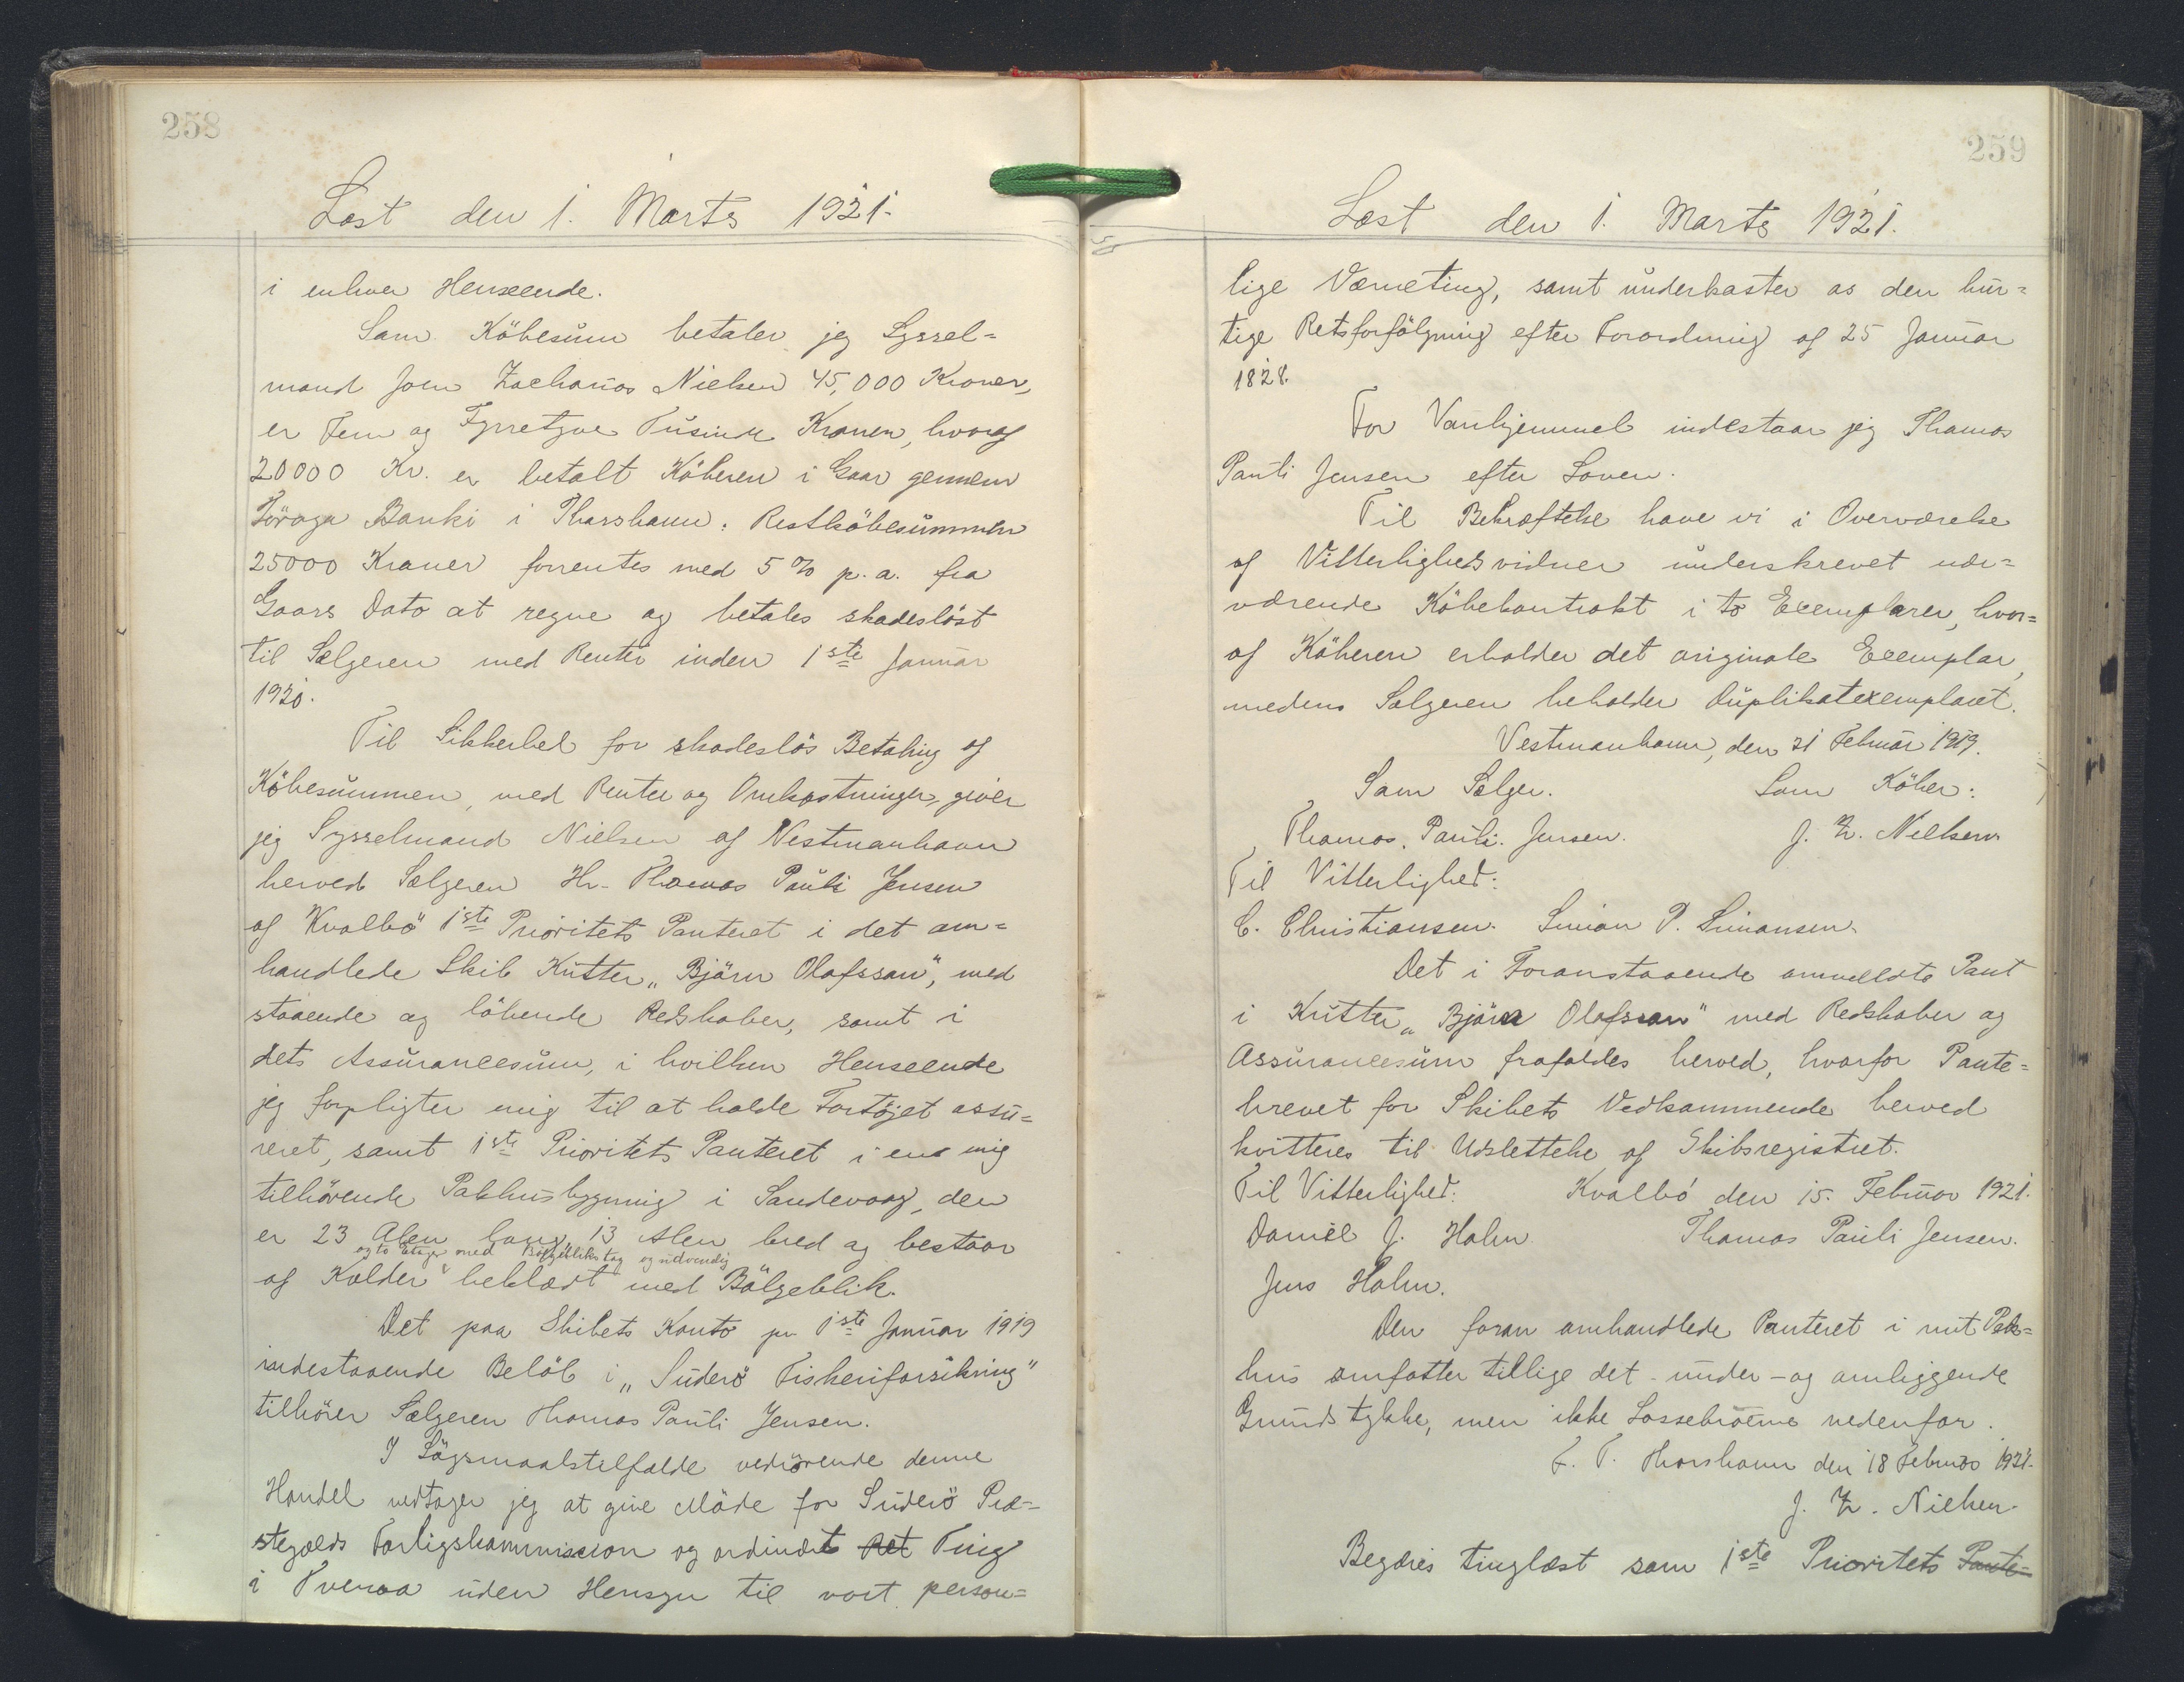 258
Læst den 1. Marts 1921.
i enhver Henseende.
Som Köbesum betaler jeg Syssel=
mand Joen Zacharias Nielsen 45,000 Kroner,
er Fem og Fyrretyve Tusinde Kroner, hvoraf
20000 Kr. er betalt Köberen i Gaar gennem
Föroya Banki i Thorshavn. Restköbesummen
25000 Kroner forrentes med 5 % p. a. fra
Gaars Dato at regne og betales skadeslöst
til Sælgeren med Renter inden 1ste Januar
1920.
Til Sikkerhed for skadeslös Betaling af
Köbesummen, med Renter og Omkostninger, giver
jeg Sysselmand Nielsen af Vestmanhavn
herved Sælgeren Hr. Thomas Pauli Jensen
af Kvalbö 1ste Prioritets Panteret i det om=
handlede Skib Kutter „Björn Olafsson”, med
staaende og löbende Redskaber, samt i
dets Assurancesum, i hvilken Henseende
jeg forpligter mig til at holde Fartöjet assu=
reret, samt 1ste Prioritets Panteret i en mig
tilhörende Pakhusbygning i Sandevaag, der
er 23 Alen lang 13 Alen bred og bestaar
og to Etager med Bölgebliks tag og udvendig
af Kælder beklædt med Bölgeblik.
Det paa Skibets Konto pr. 1ste Januar 1919
indestaaende Belöb i „Suderö Fiskeriforsikring”
tilhörer Sælgeren Thomas Pauli Jensen.
I Sögsmaalstilfælde vedrörende denne
Handel vedtager jeg at give Möde for Suderö Præ=
stegælds Forligskommission og ordinært Ret Ting
i Tveraa uden Hensyn til vort person=
259
Læst den 1. Marts 1921.
lige Værneting, samt underkaster os den hur=
tige Retsforfölgning efter Forordning af 25 Januar
1828.
For Vanhjemmel indestaar jeg Thomas
Pauli Jensen efter Loven.
Til Bekræftelse have vi i Overværelse
af Vitterlighedsvidner underskrevet nær=
værende Köbekontrakt i to Exemplarer, hvor=
af Köberen erholder det originale Exemplar,
medens Sælgeren beholder Duplikatexemplaret.
Vestmanhavn, den 21 Februar 1919.
Som Sælger. Som Köber:
Thomas Pauli Jensen. J. Z. Nielsen
Til Vitterlighed:
C. Christiansen. Simon P. Simonsen.
Det i Foranstaaende ommeldte Pant
i Kutter „Björn Olafsson” med Redskaber og
Assurancesum frafaldes herved, hvorfor Pante=
brevet for Skibets Vedkommende herved
kvitteres til Udslettelse af Skibsregistret.
Til Vitterlighed: Kvalbö den 15. Februar 1921.
Daniel J. Holm Thomas Pauli Jensen.
Jens Holm.
Den foran omhandlede Panteret i mit Pak=
hus omfatter tillige det under - og omliggende
Grundstykke, men ikke Lossebroerne nedenfor.
F. T. Thorshavn den 18 Februar 1921.
J. Z. Nielsen.
Begæres tinglæst som 1ste Prioritets Pante=